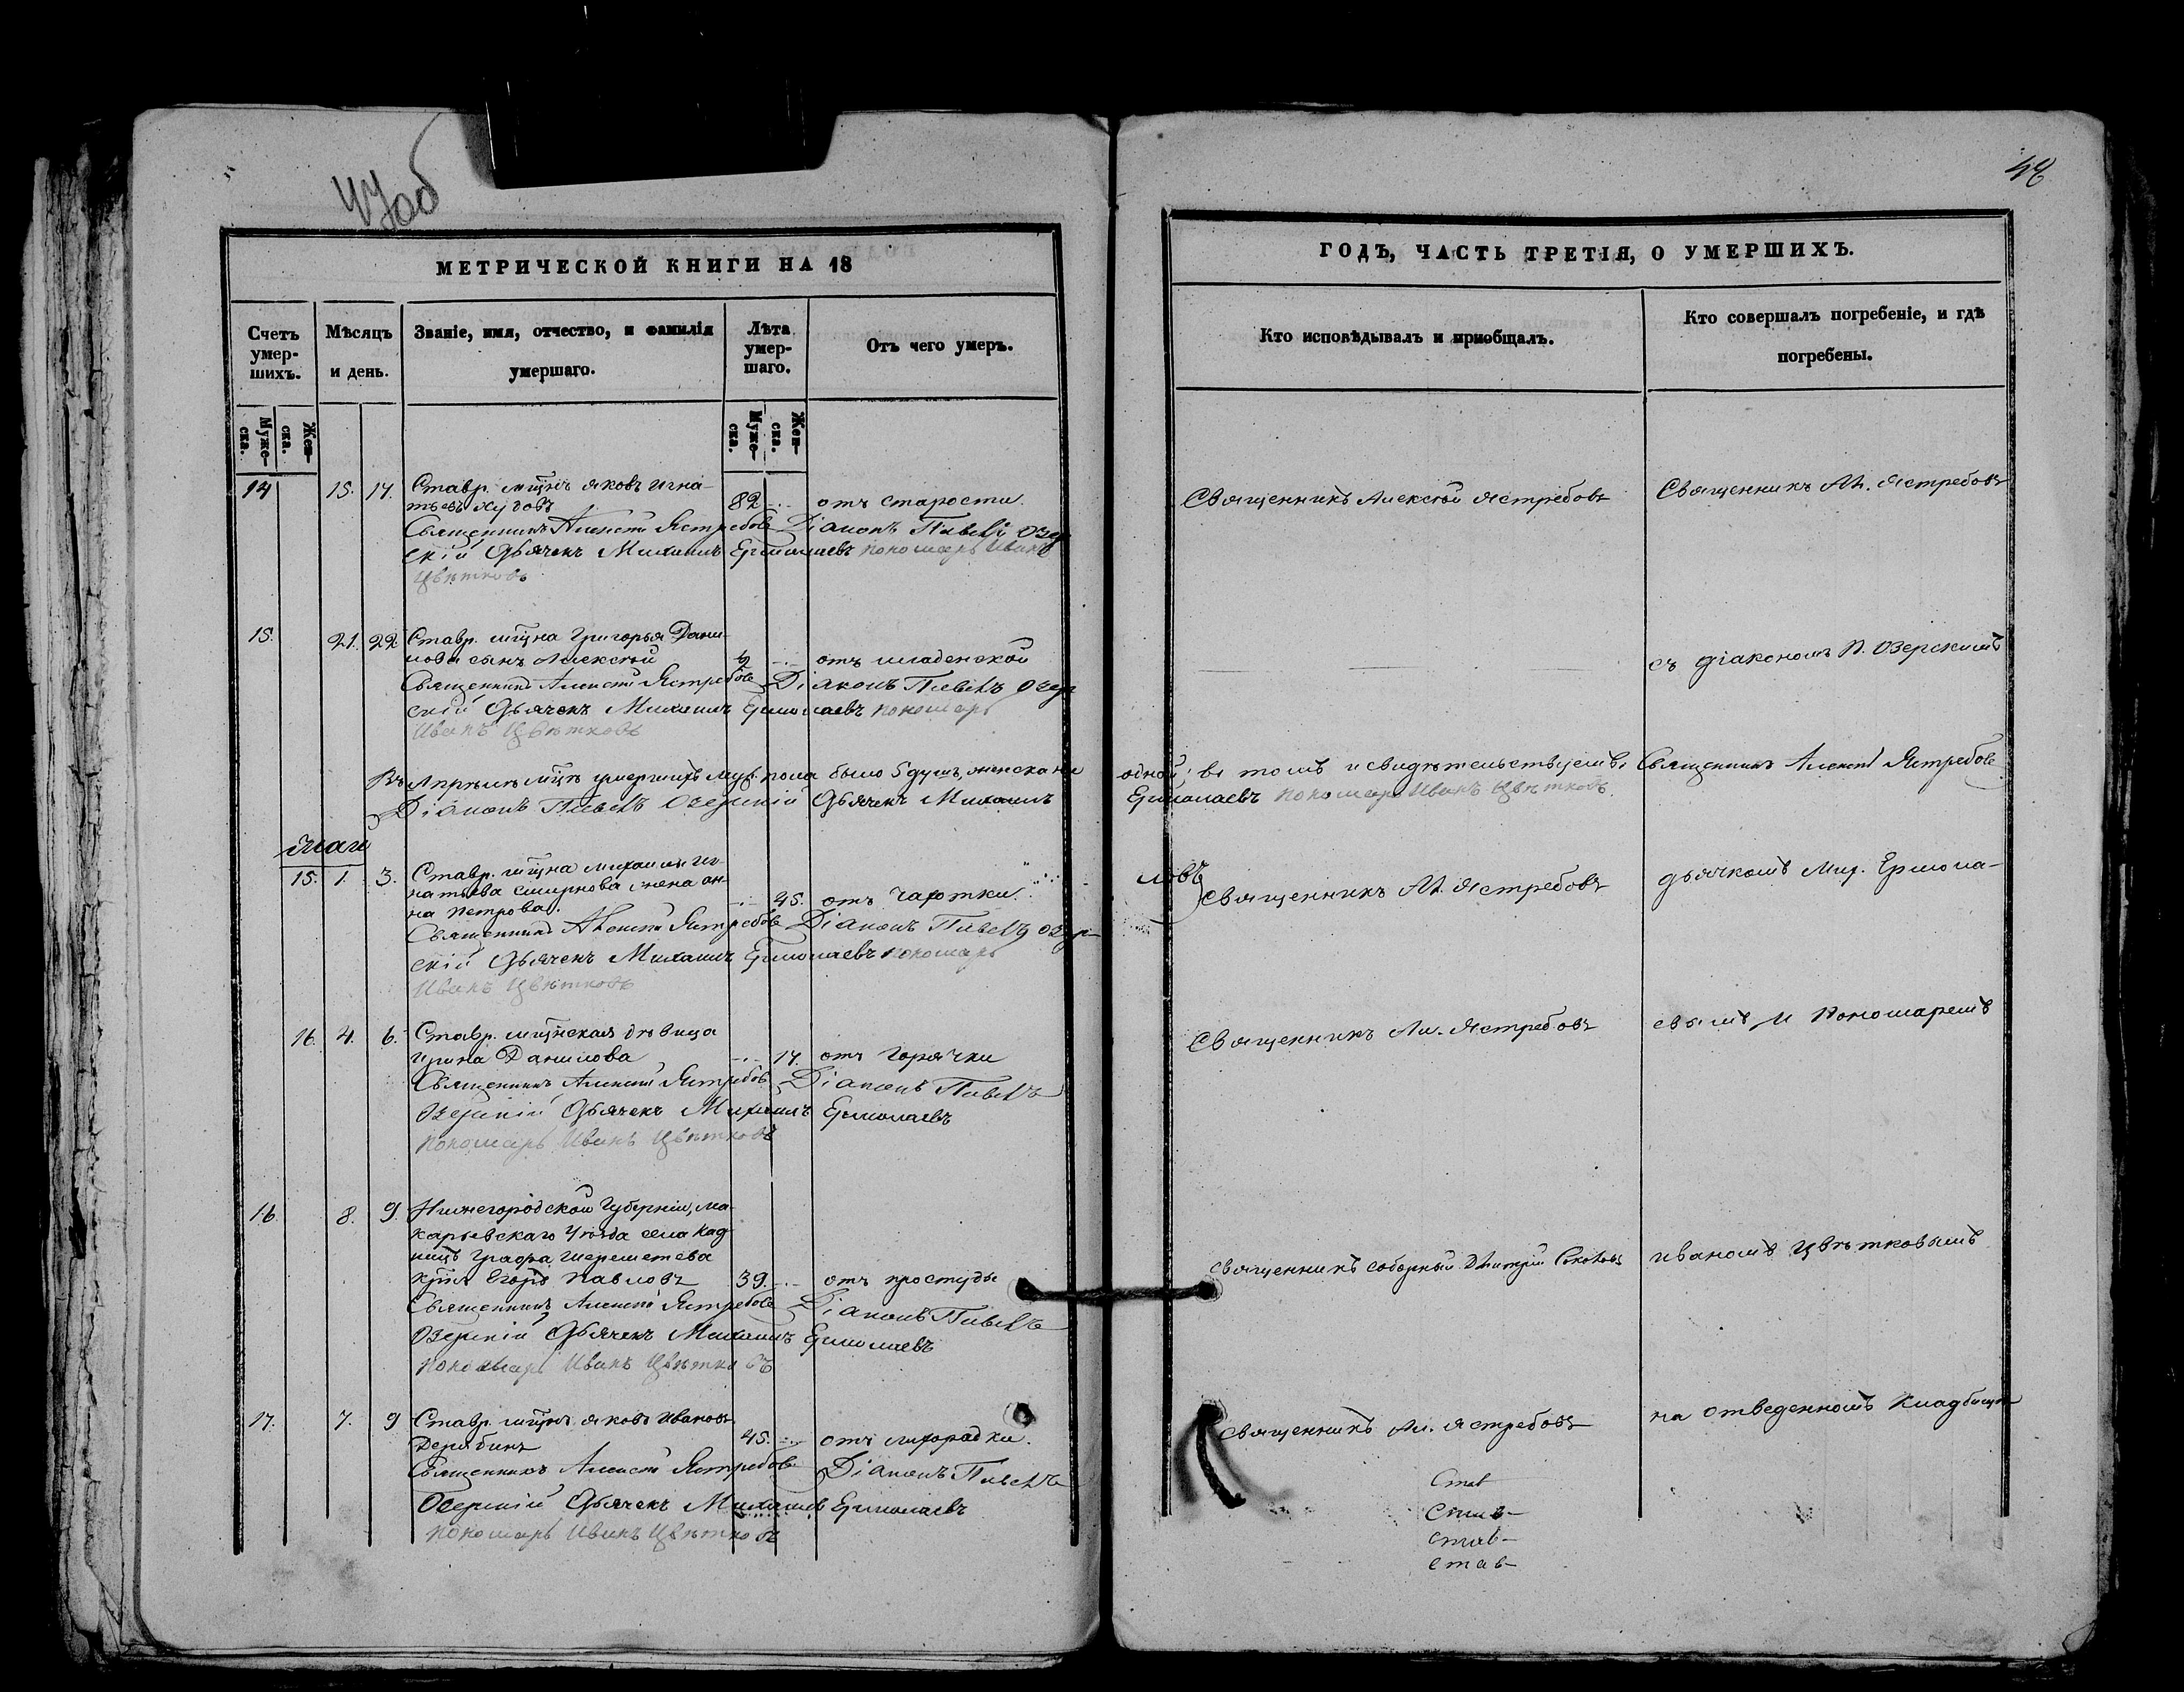 47об
48
МЕТРИЧЕСКОЙ КНИГИ НА 18
Счетъ умер-шихъ.
Мѣсяцъ и день.
Званіе, имя, отчество, и фамилія умершаго.
Лѣта умер-шаго.
Отъ чего умеръ.
Муже-ска.
Жен-ска.
Муже-ска.
Жен-ска.
14 15. 17. Ставр. мщнъ Яковъ Игна-
тьевъ 82 отъ старости
Священникъ Алексій Ястребовъ Діаконъ Павелъ Озер
скій Дьячекъ Михаилъ Ермолаевъ Пономарь Иванъ
Цвѣтковъ
15. 21. 22. Ставр. мщна Григорья Дани-
лова сынъ Алексѣй отъ младенской
Священникъ Алексій Ястребовъ Діаконъ Павелъ Озер
скій Дьячекъ Михаилъ Ермолаевъ Пономарь
Иванъ Цвѣтковъ
Въ Апрѣлѣ мцѣ умершихъ муж. пола было 5 душъ, женска ни
Діаконъ Павелъ Озерскій Дьячекъ Михаилъ
Маія
15. 1. 3. Ставр. мщна Михаила Иг-
натьева Смирнова жена Ан-
на Петрова. 45. отъ чахотки
Священникъ Алексій Ястребовъ Діаконъ Павелъ Озер-
скій Дьячекъ Михаилъ Ермолаевъ Пономарь
Иванъ Цвѣтковъ
16. 4. 6. Ставр. мщнская дѣвица
Ирина Данилова 17. отъ горячки
Священникъ Алексій Ястребовъ Діаконъ Павелъ
Озерскій Дьячекъ Михаилъ Ермолаевъ
Пономарь Иванъ Цвѣтковъ
16. 8. 9. Нижегородской Губерніи, Ма-
карьевскаго Уѣзда села Кад-
ницъ Графа Шереметева
Егоръ Павловъ 39. отъ простуды
Священникъ Алексій Ястребовъ Діаконъ Павелъ
Озерскій Дьячекъ Михаилъ Ермолаевъ
Пономарь Иванъ Цвѣтковъ
17. 7. 9 Ставр. мщнъ Яковъ Ивановъ
Дерябинъ 45. отъ лихорадки.
Священникъ Алексій Ястребовъ Діаконъ Павелъ
Озерскій Дьячекъ Михаилъ Ермолаевъ
Пономарь Иванъ Цвѣтковъ
ГОДЪ, ЧАСТЬ ТРЕТІЯ, О УМЕРШИХЪ.
Кто исповѣдывалъ и приобщалъ.
Кто совершалъ погребеніе, и гдѣ погребены.
Священникъ Алексѣй Ястребовъ
Священникъ Ал. Ястребовъ
съ діакономъ П. Озерскимъ
одной; въ томъ и свидѣтельствуемъ: Священникъ Алексій Ястребовъ
Ермолаевъ Пономарь Иванъ Цвѣтковъ
Священникъ Ал. Ястребовъ
дьячкомъ Мих. Ермола-
Священникъ Ал. Ястребовъ
евымъ и Пономаремъ
Священникъ соборный Димитрій Соколовъ
Иваномъ Цвѣтковымъ
Священникъ Ал. Ястребовъ
на отведенномъ кладбищѣ
Став
Став-
Став-
Став-